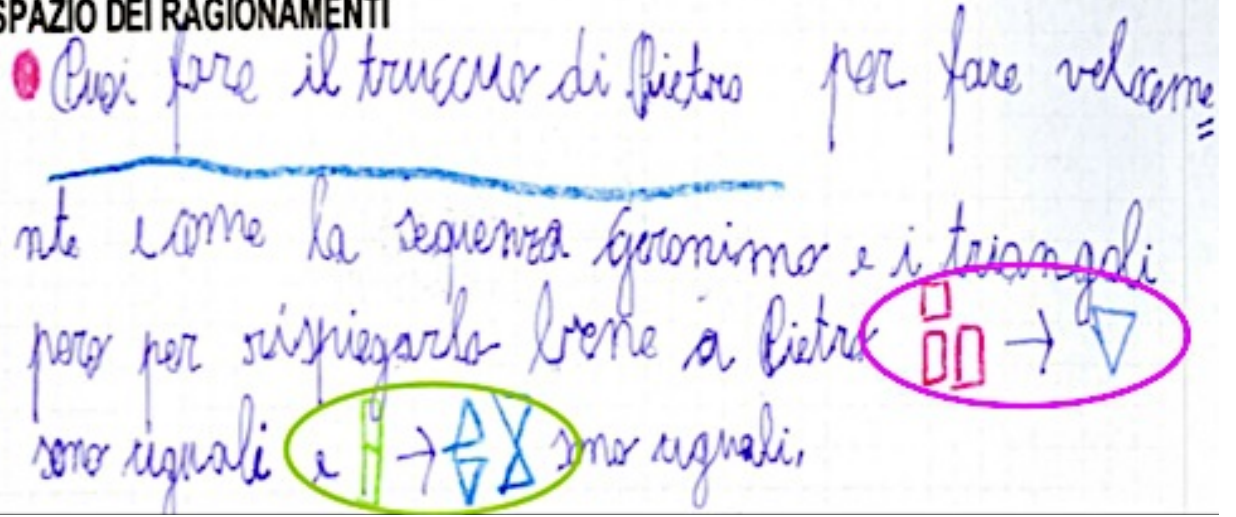 SPAZIO DEI RAGIONAMENTI
Puoi fare il truccuo di Pietro per fare veloceme
nte e come la sequenza Geronimo e i triangoli
pero per rispiegarlo bene a Pietro →
sono uguali e → sono uguali.